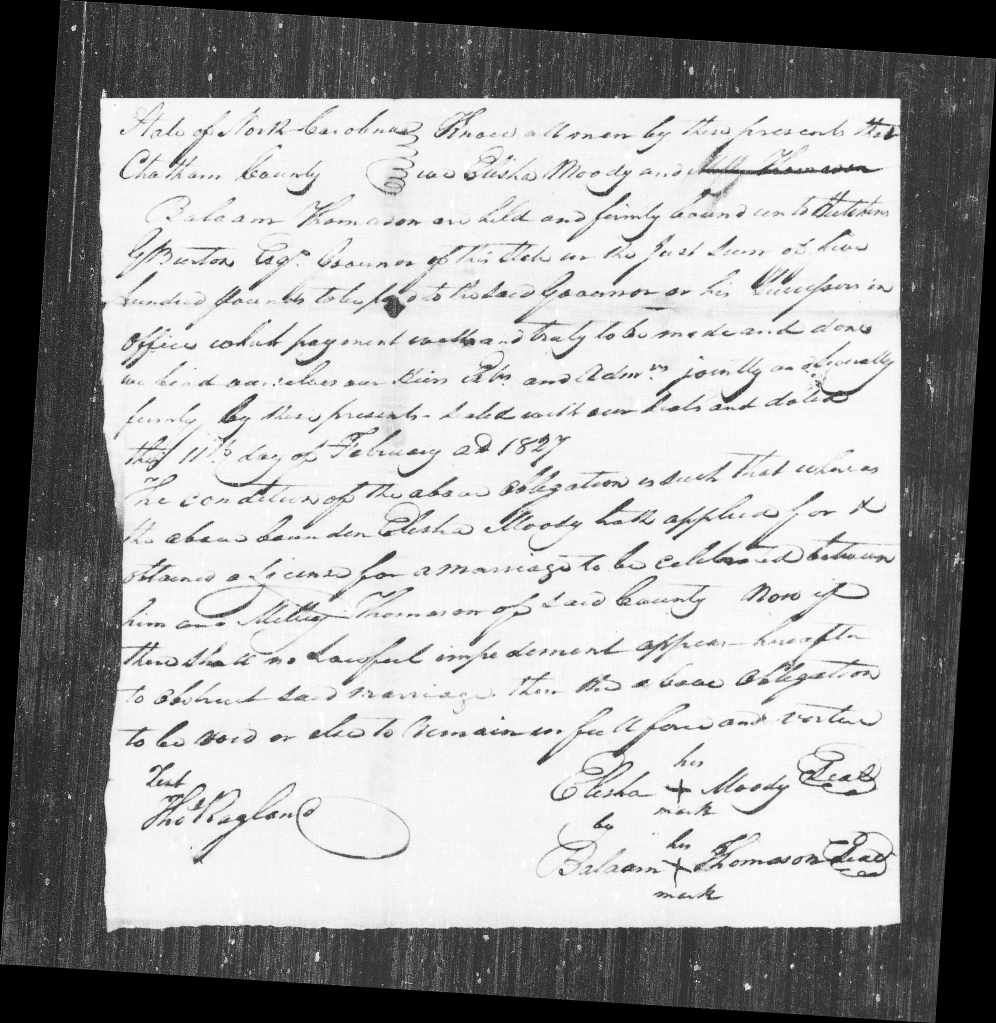 State of North Carolina Know all men by these presents that
Chatham County We Elisha Moody and Milly Thomason
Balaam Thomason are held and firmly bound unto Hutchins
G Burton Esqr. Governor of this State in the Just Sum of five
hundred pounds to be paid to the said Governor or his Successors in
office which payment well and truly to be made and done
we bind ourselves our Heirs Exrs and Admrs jointly and Severally
firmly by these presents Sealed with our seals and dated
this 11th day of February AD 1827
The condition of the above obligation is such that whereas
the above bounden Elisha Moody hath applied for &
obtained a License for a marriage to be celebrated between
him and Milley Thomason of said County Now if
there shall no Lawful impediment appear hereafter
to obstruct said marriage then the above obligation
to be void or else to remain in full force and virtue
Test
Thos Ragland
his
Elisha + Moody Seal
mark
by
his
Balaam + Thomason Seal
mark